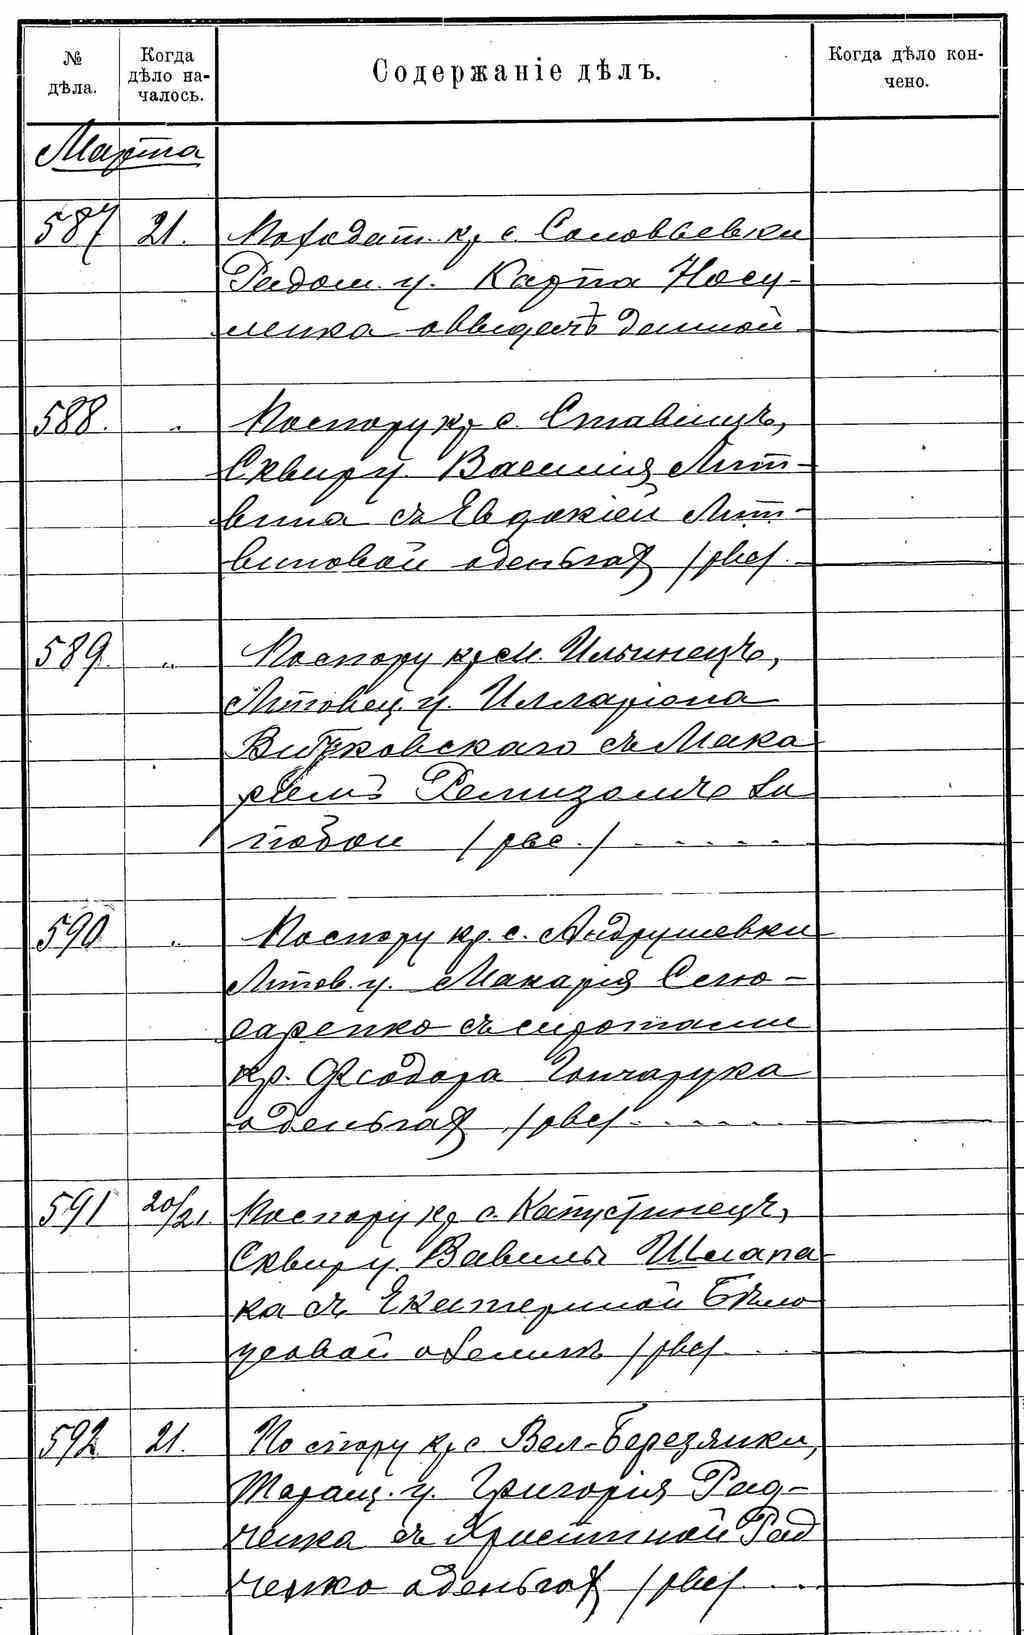 № дѣла.
Когда дѣло на-
чалось.
Содержаніе дѣлъ.
Когда дѣло кон-
чено.
Марта
587 21. По ходат. кр. с. Соловьевки
Радом. у. Карпа Носу-
ленка о выдачѣ данной
588. " По спору кр. с. Ставищъ,
Сквир. у. Василія Лит-
вина съ Евдокіей Лит-
виновой о деньгах /рвс/.
589. " По спору кр. м. Ильинецъ,
Липовец. у. Илларіона
Витковскаго съ Мака
ріемъ Ремизомъ
/рвс./
590 " По спору кр. с. Андрушевки
Липов. у. Макарія Слю-
саренко съ сиротами
кр. Ѳеодора Гончарука
о деньгах /рвс/
591 20/21. По спору кр. с. Капустинецъ,
Сквир. у. Вавилы Шмапа-
ка съ Екатериной Бѣло
усовой о землѣ /рвс/
592 21. По спору кр. с. Вел-Березянки,
Таращ. у. Григорія Рад-
ченка съ Христиной Рад
ченко о деньгах /рвс/